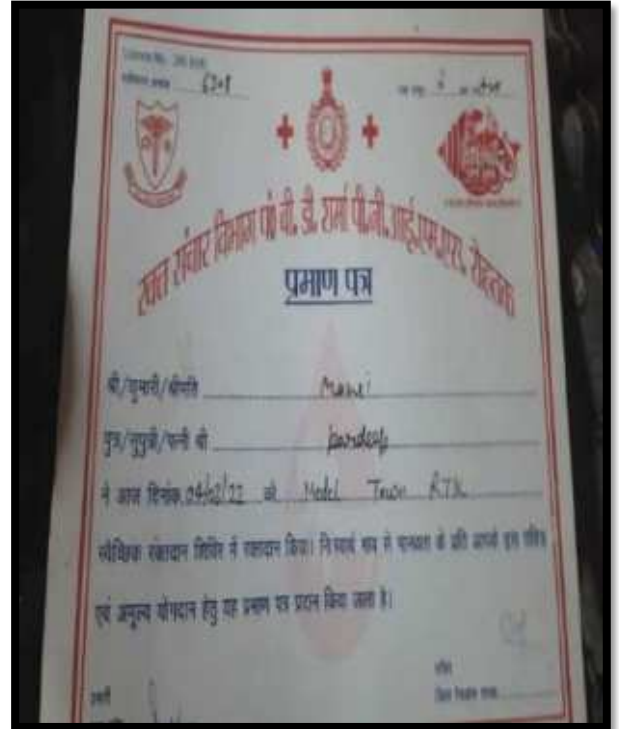 6201
रक्त संचार विभाग पं0 बी. डी. शर्मा पी.जी.आई.एम.एस. रोहतक
प्रमाण पत्र
श्री/कुमारी/श्रीमति
पुत्र/सुपुत्री/पत्नी श्री pardeep
ने आज दिनांक 04/02/22 को Model Town RTK
स्वैच्छिक रक्तदान शिविर में रक्तदान किया। निःस्वार्थ भाव से मानवता के प्रति आपके इस पवित्र
एवं अमूल्य योगदान हेतु यह प्रमाण पत्र प्रदान किया जाता है।